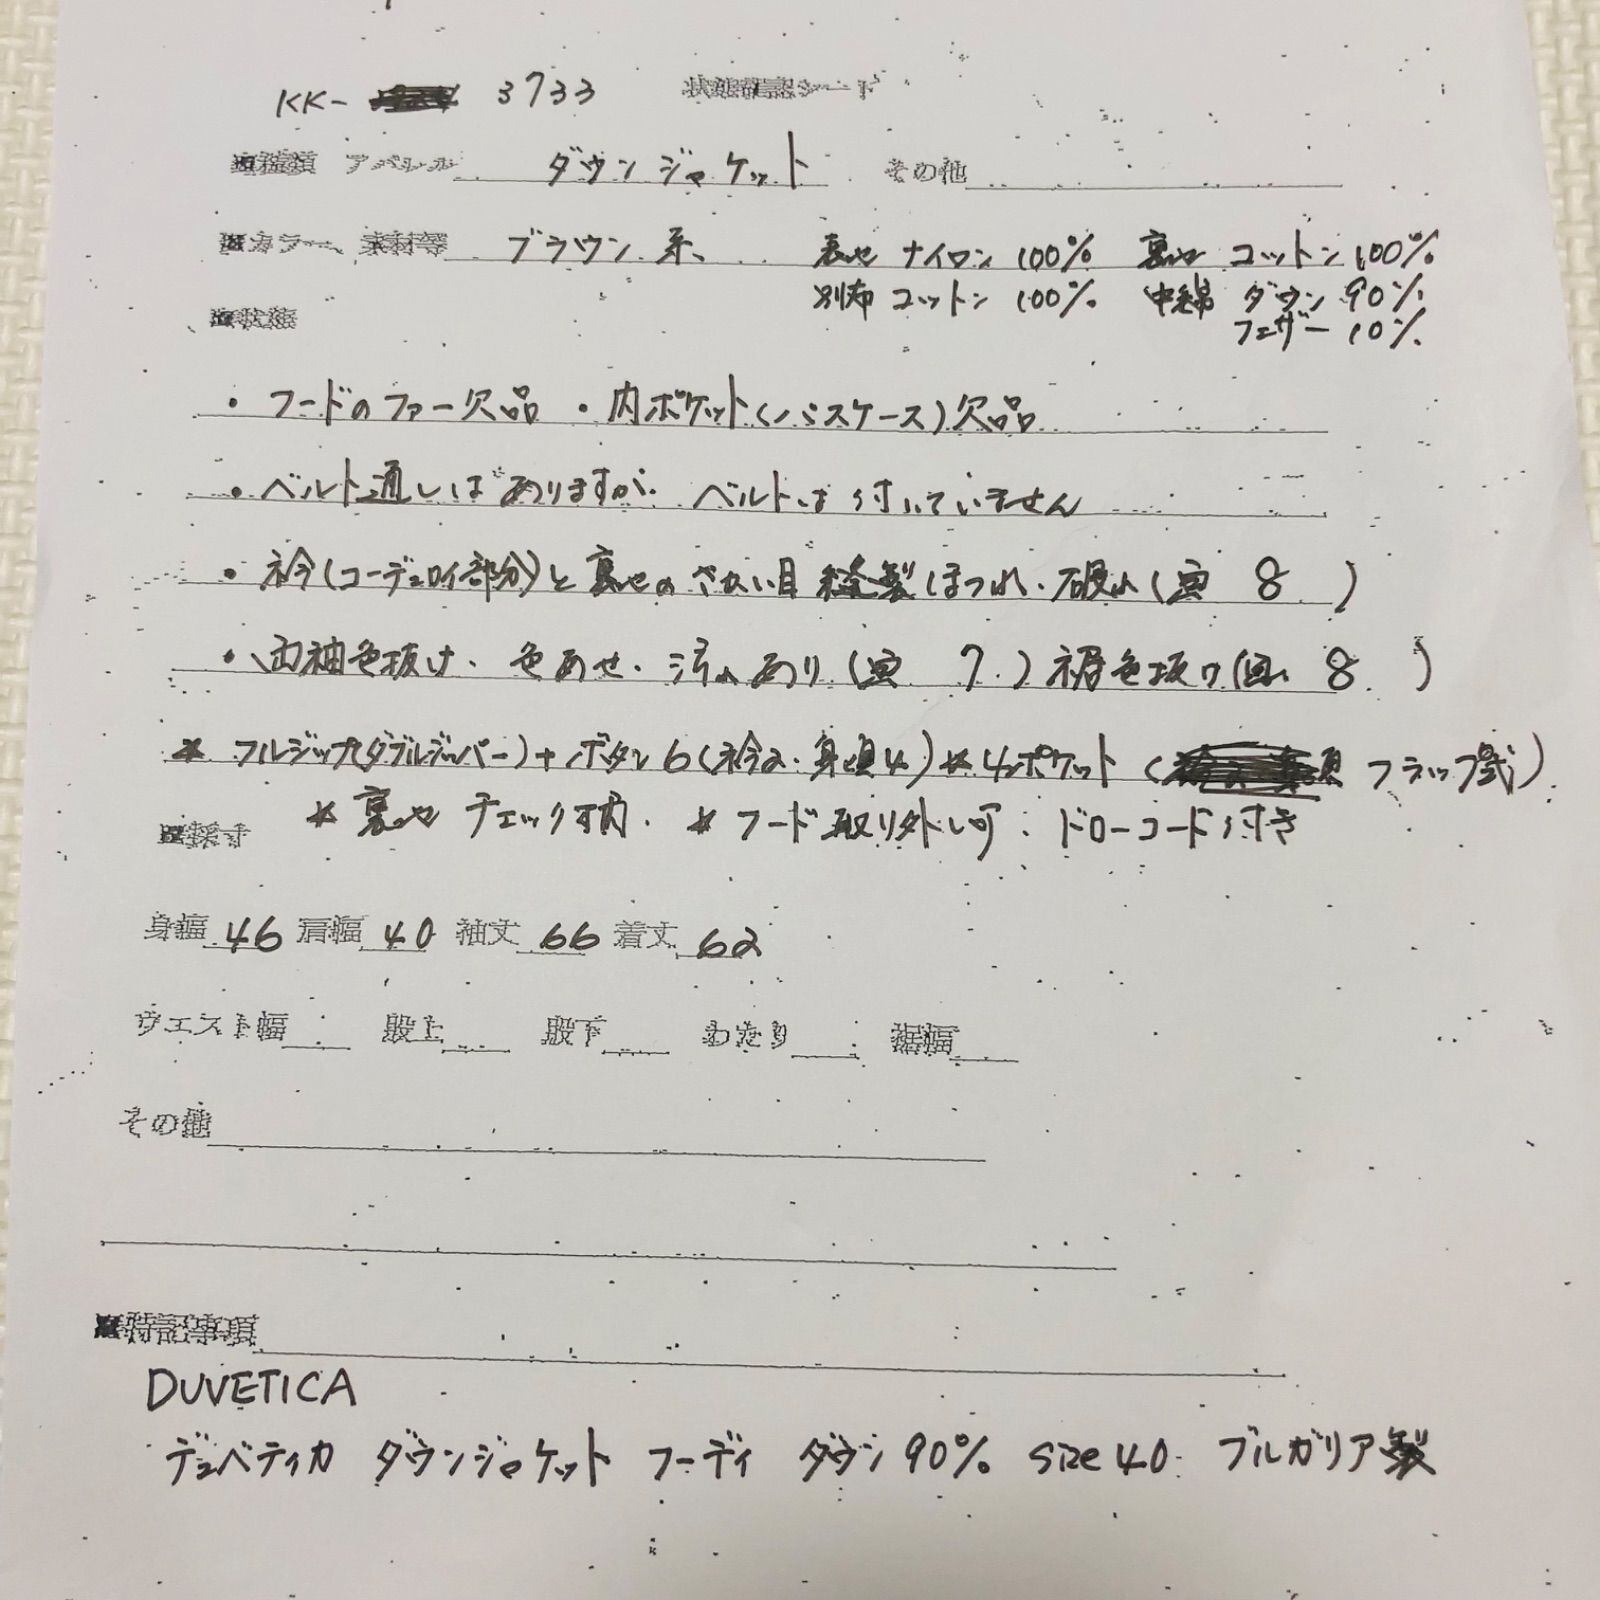 KK- 3733 状態確認シート
■種類 アパレル ダウンジャケット その他
■カラー、素材等 ブラウン系、 表地 ナイロン 100% 裏地 コットン 100%
別布 コットン 100% 中綿 ダウン 90%
■状態 フェザー 10%
・フードのファー欠品 ・内ポケット(パスケース)欠品
・ベルト通しはありますが、ベルトは付いていません
・衿(コーデュロイ部分)と裏地のさかい目 縫製ほつれ、破れ(画 8 )
・両袖色抜け、色あせ、汚れあり(画 7 )裾色抜け(画 8 )
* フルジップ(ダブルジッパー)+ボタン6(衿2、身頃4) * 4ポケット( フラップ式)
* 裏地 チェック柄、 * フード取り外し可、ドローコード付き
■採寸
身幅 46 肩幅 40 袖丈 66 着丈 62
ウエスト幅 股上 股下 わたり 裾幅
その他
■特記事項
DUVETICA
デュベティカ ダウンジャケット フーディ ダウン90% size 40 ブルガリア製